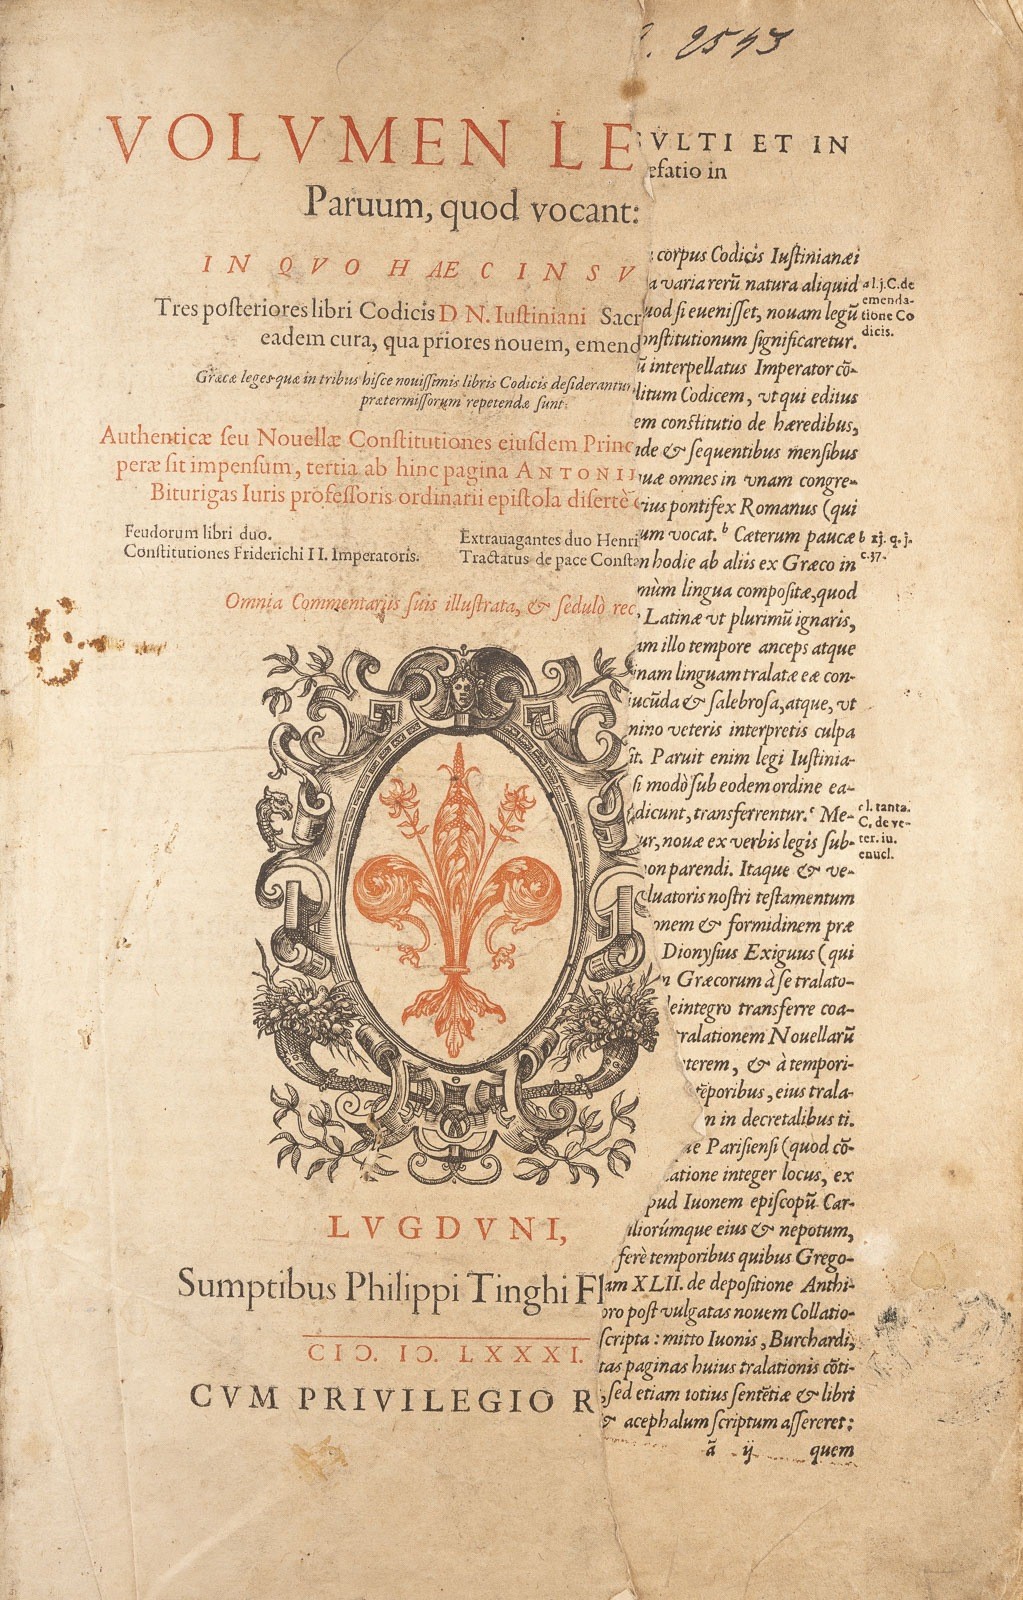 2543
VOLVMEN LE
Paruum, quod vocant:
IN QVO HÆC INSV
Tres posteriores libri Codicis D N. Iustiniani Sacr
eadem cura, qua priores nouem, emend
Græcæ leges quæ in tribus hisce nouissimis libris Codicis desiderantur,
prætermissorum repetendæ sunt.
Authenticæ seu Nouellæ Constitutiones eiusdem Princ
peræ sit impensum, tertia ab hinc pagina ANTONII
Biturigas Iuris professoris ordinarii epistola disertè
Feudorum libri duo.
Constitutiones Friderichi II. Imperatoris.
Extrauagantes duo Henri
Tractatus de pace Consta
Omnia Commentariis suis illustrata, & sedulò rec
LVGDVNI,
Sumptibus Philippi Tinghi Fl
CIↃ. IↃ. LXXXI.
CVM PRIVILEGIO R
VLTI ET IN
efatio in
corpus Codicis Iustinianæi
a varia rerū natura aliquid
uod si euenisset, nouam legū
onstitutionum significaretur.
ū interpellatus Imperator cō-
litum Codicem, vt qui editus
em constitutio de hæredibus,
nde & sequentibus mensibus
quæ omnes in vnam congre-
rius pontifex Romanus (qui
um vocat. b Cæterum paucæ
n hodie ab aliis ex Græco in
mùm lingua compositæ, quod
Latinæ vt plurimū ignaris,
am illo tempore anceps atque
inam linguam tralatæ eæ con-
iucūda & salebrosa, atque, vt
nino veteris interpretis culpa
sit. Paruit enim legi Iustinia-
si modò sub eodem ordine ea-
dicunt, transferrentur. c Me-
ur, nouæ ex verbis legis sub-
non parendi. Itaque & ve-
luatoris nostri testamentum
onem & formidinem præ
Dionysius Exiguus (qui
n Græcorum à se tralato-
eintegro transferre coa-
ralationem Nouellarū
terem, & à tempori-
ēporibus, eius trala-
n in decretalibus ti.
ue Parisiensi (quod cō-
atione integer locus, ex
pud Iuonem episcopū Car-
iliorúmque eius & nepotum,
ferè temporibus quibus Grego-
am XLII. de depositione Anthi-
oro post vulgatas nouem Collatio-
scripta: mitto Iuonis, Burchardi,
tas paginas huius tralationis cōti-
sed etiam totius sentētiæ & libri
& acephalum scriptum assereret:
ā ij quem
a l.j.C.de
emenda-
tione Co
dicis.
b xj. q. j.
c.37.
c l. tanta.
C. de ve-
ter. iu.
enucl.